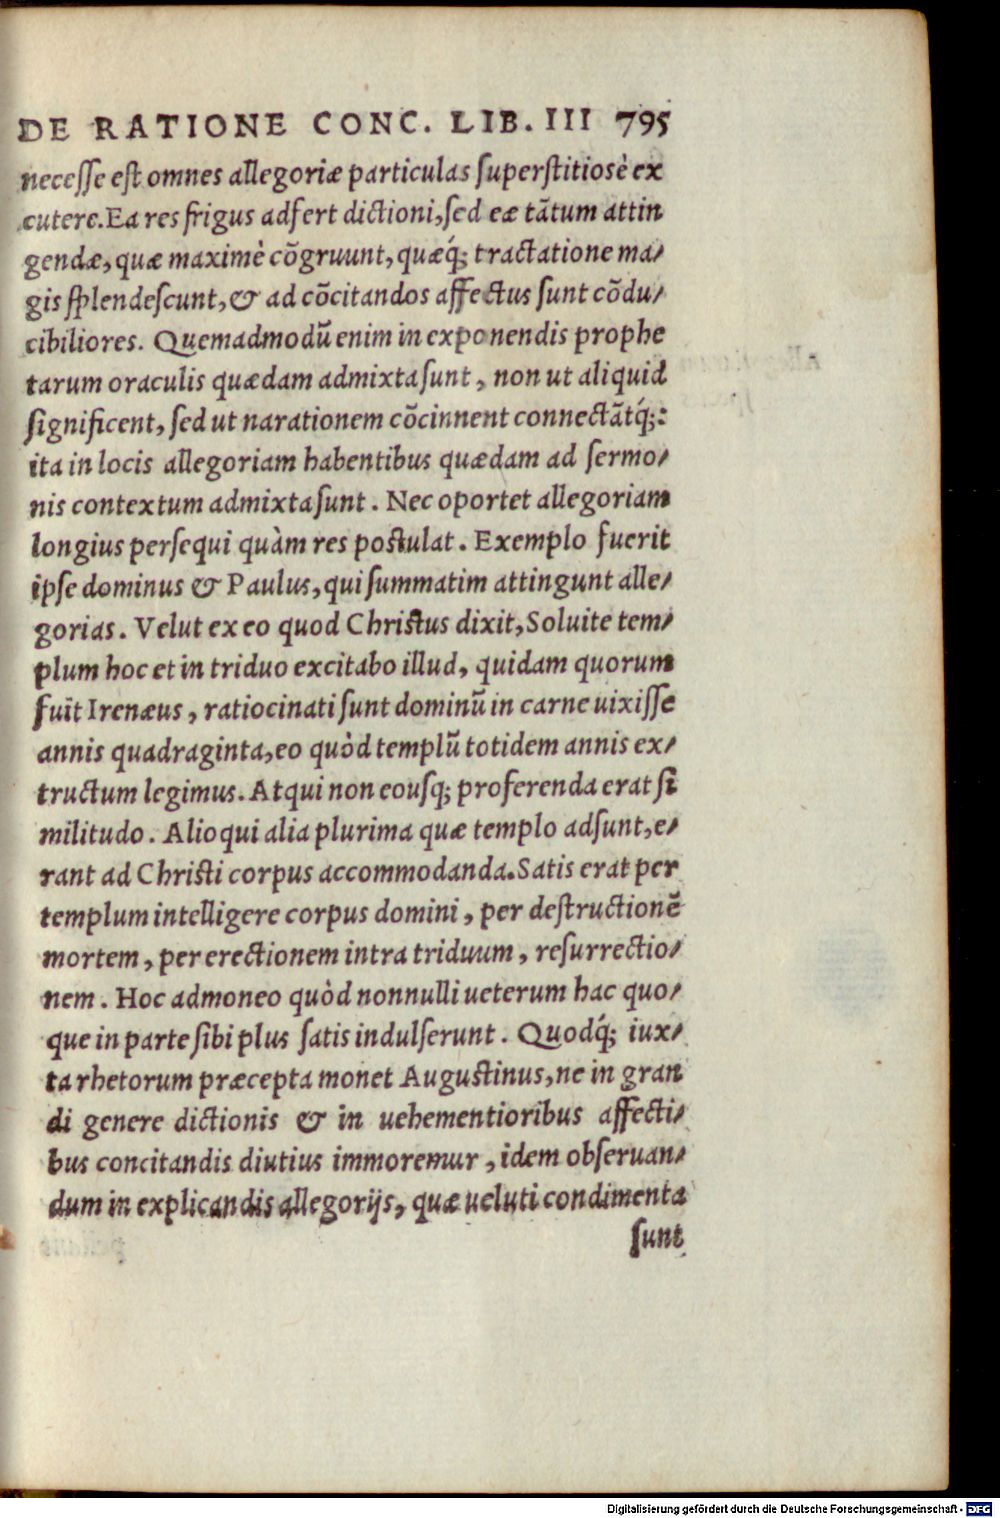 DE RATIONE CONC. LIB. III 795
necesse est omnes allegoriæ particulas superstitiosè ex
cutere. Ea res frigus adfert dictioni, sed eæ tãtum attin
gendæ, quæ maximè cõgruunt, quæq́; tractatione ma/
gis splendescunt, & ad cõcitandos affectus sunt cõdu/
cibiliores. Quemadmodũ enim in exponendis prophe
tarum oraculis quædam admixta sunt, non ut aliquid
significent, sed ut narationem cõcinnent connectãtq́;:
ita in locis allegoriam habentibus quædam ad sermo/
nis contextum admixta sunt. Nec oportet allegoriam
longius persequi quàm res postulat. Exemplo fuerit
ipse dominus & Paulus, qui summatim attingunt alle/
gorias. Velut ex eo quod Christus dixit, Soluite tem/
plum hoc et in triduo excitabo illud, quidam quorum
fuit Irenæus, ratiocinati sunt dominũ in carne uixisse
annis quadraginta, eo quòd templũ totidem annis ex/
tructum legimus. Atqui non eousq; proferenda erat si
militudo. Alioqui alia plurima quæ templo adsunt, e/
rant ad Christi corpus accommodanda. Satis erat per
templum intelligere corpus domini, per destructionẽ
mortem, per erectionem intra triduum, resurrectio/
nem. Hoc admoneo quòd nonnulli ueterum hac quo/
que in parte sibi plus satis indulserunt. Quodq́; iux/
ta rhetorum præcepta monet Augustinus, ne in gran
di genere dictionis & in uehementioribus affecti/
bus concitandis diutius immoremur, idem obseruan/
dum in explicandis allegorijs, quæ ueluti condimenta
sunt
Digitalisierung gefördert durch die Deutsche Forschungsgemeinschaft - DFG